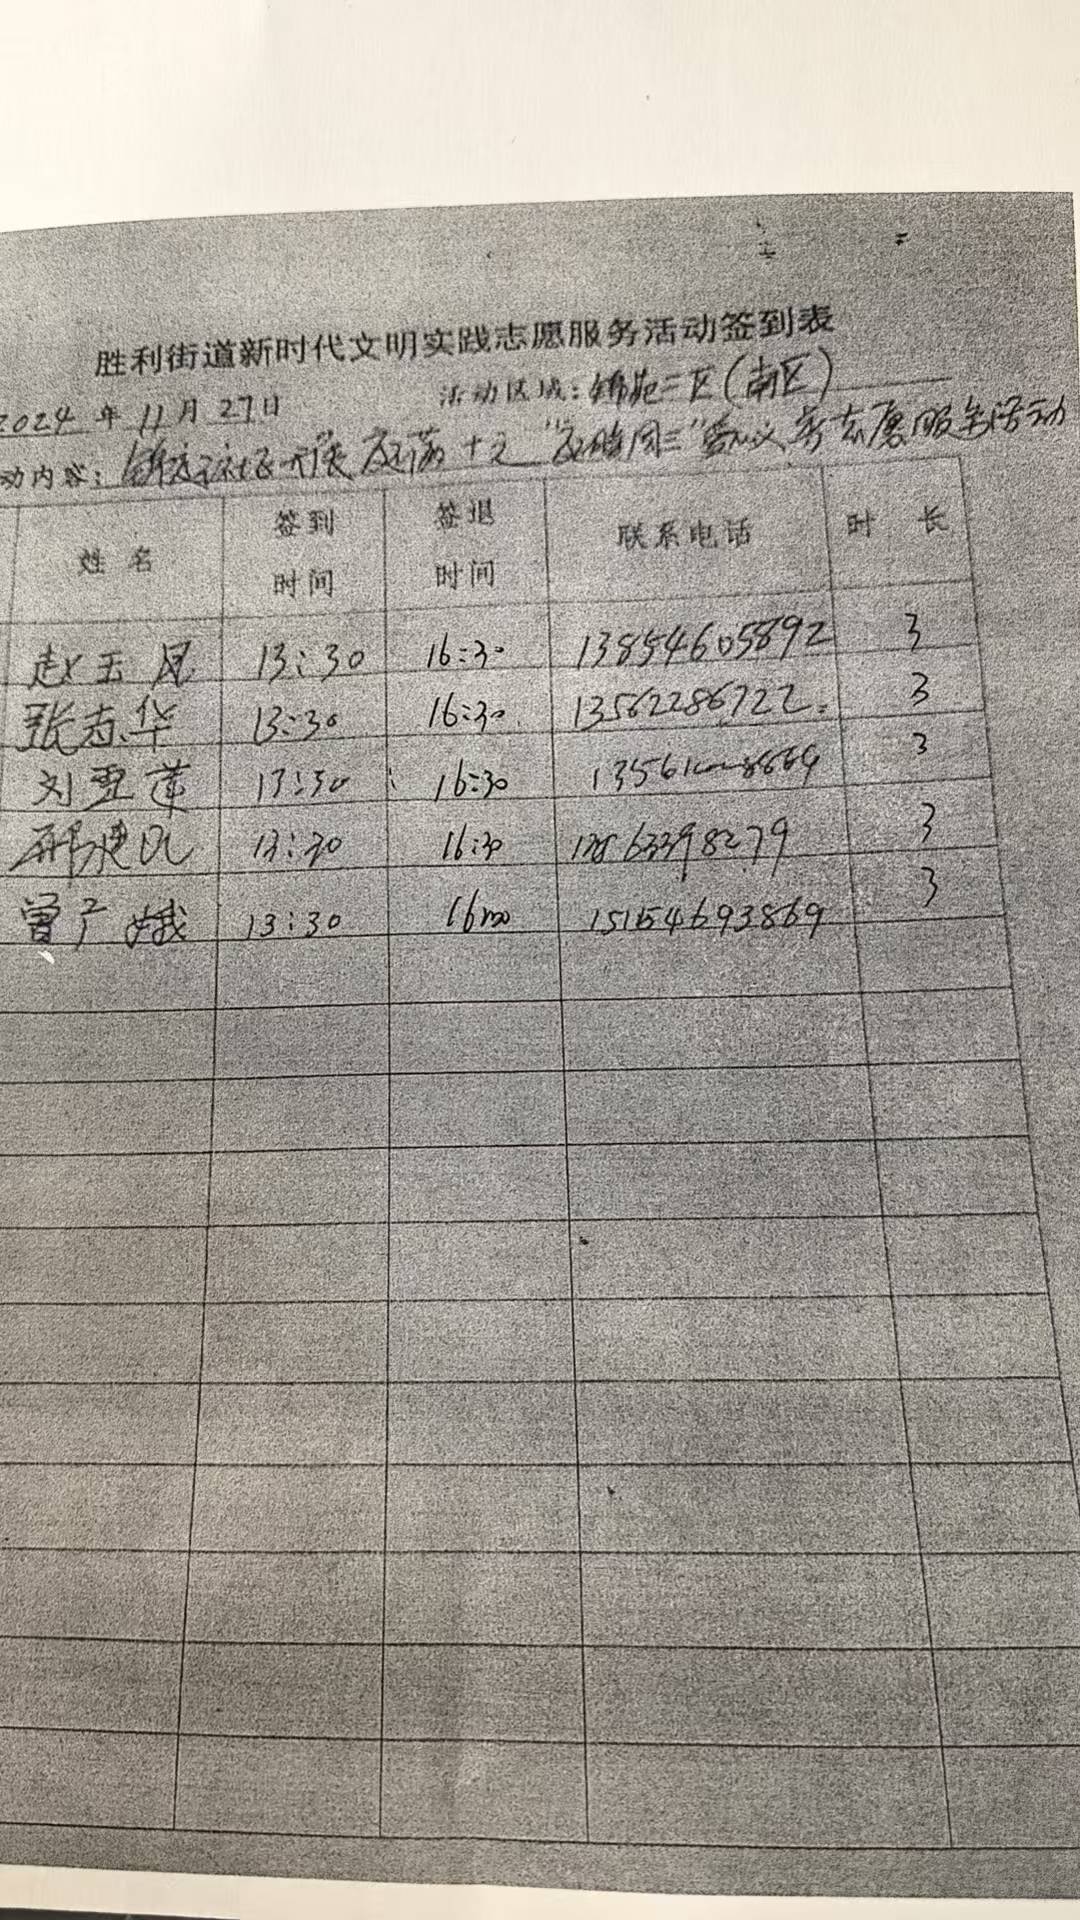 胜利街道新时代文明实践志愿服务活动签到表
2024年11月27日 活动区域：锦苑三区（南区）
动内容：锦苑社区开展 志愿服务活动
姓名 签到时间 签退时间 联系电话 时长
赵玉凤 13:30 16:30 13854605892 3
张志华 13:30 16:30 13562286722. 3
刘亚莲 13:30 16:30 3
13:30 16:30 3
曾广娥 13:30 16:30 3